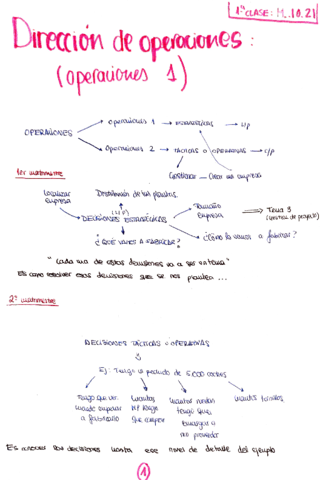 1ª CLASE: M. 10. 21
Dirección de operaciones:
(operaciones 1)
operaciones 1 → ESTRATÉGICAS → L/P
OPERACIONES
operaciones 2 → TÁCTICAS O OPERATIVAS → C/P
Gestionar — Crear una empresa
1er cuatrimestre
Localizar empresa
Distribución de las plantas
(L/P)
DECISIONES ESTRATÉGICAS
Tamaño empresa
⇒ Tema 3
¿QUÉ VAMOS A FABRICAR?
¿Cómo lo vamos a fabricar?
"Cada una de estas decisiones va a ser un tema"
Es como resolver esas decisiones que se nos plantea ...
2º cuatrimestre
DECISIONES TÁCTICAS U OPERATIVAS
Ej: Tengo un pedido de 5.000 coches
Tengo que ver
cuando empezar
a fabricarlo
cuantas
MP tengo
que comprar
cuantas
tengo que
encargar a
mi proveedor
cuantos turnos
Es conocer las decisiones hasta ese nivel de detalle del ejemplo
1